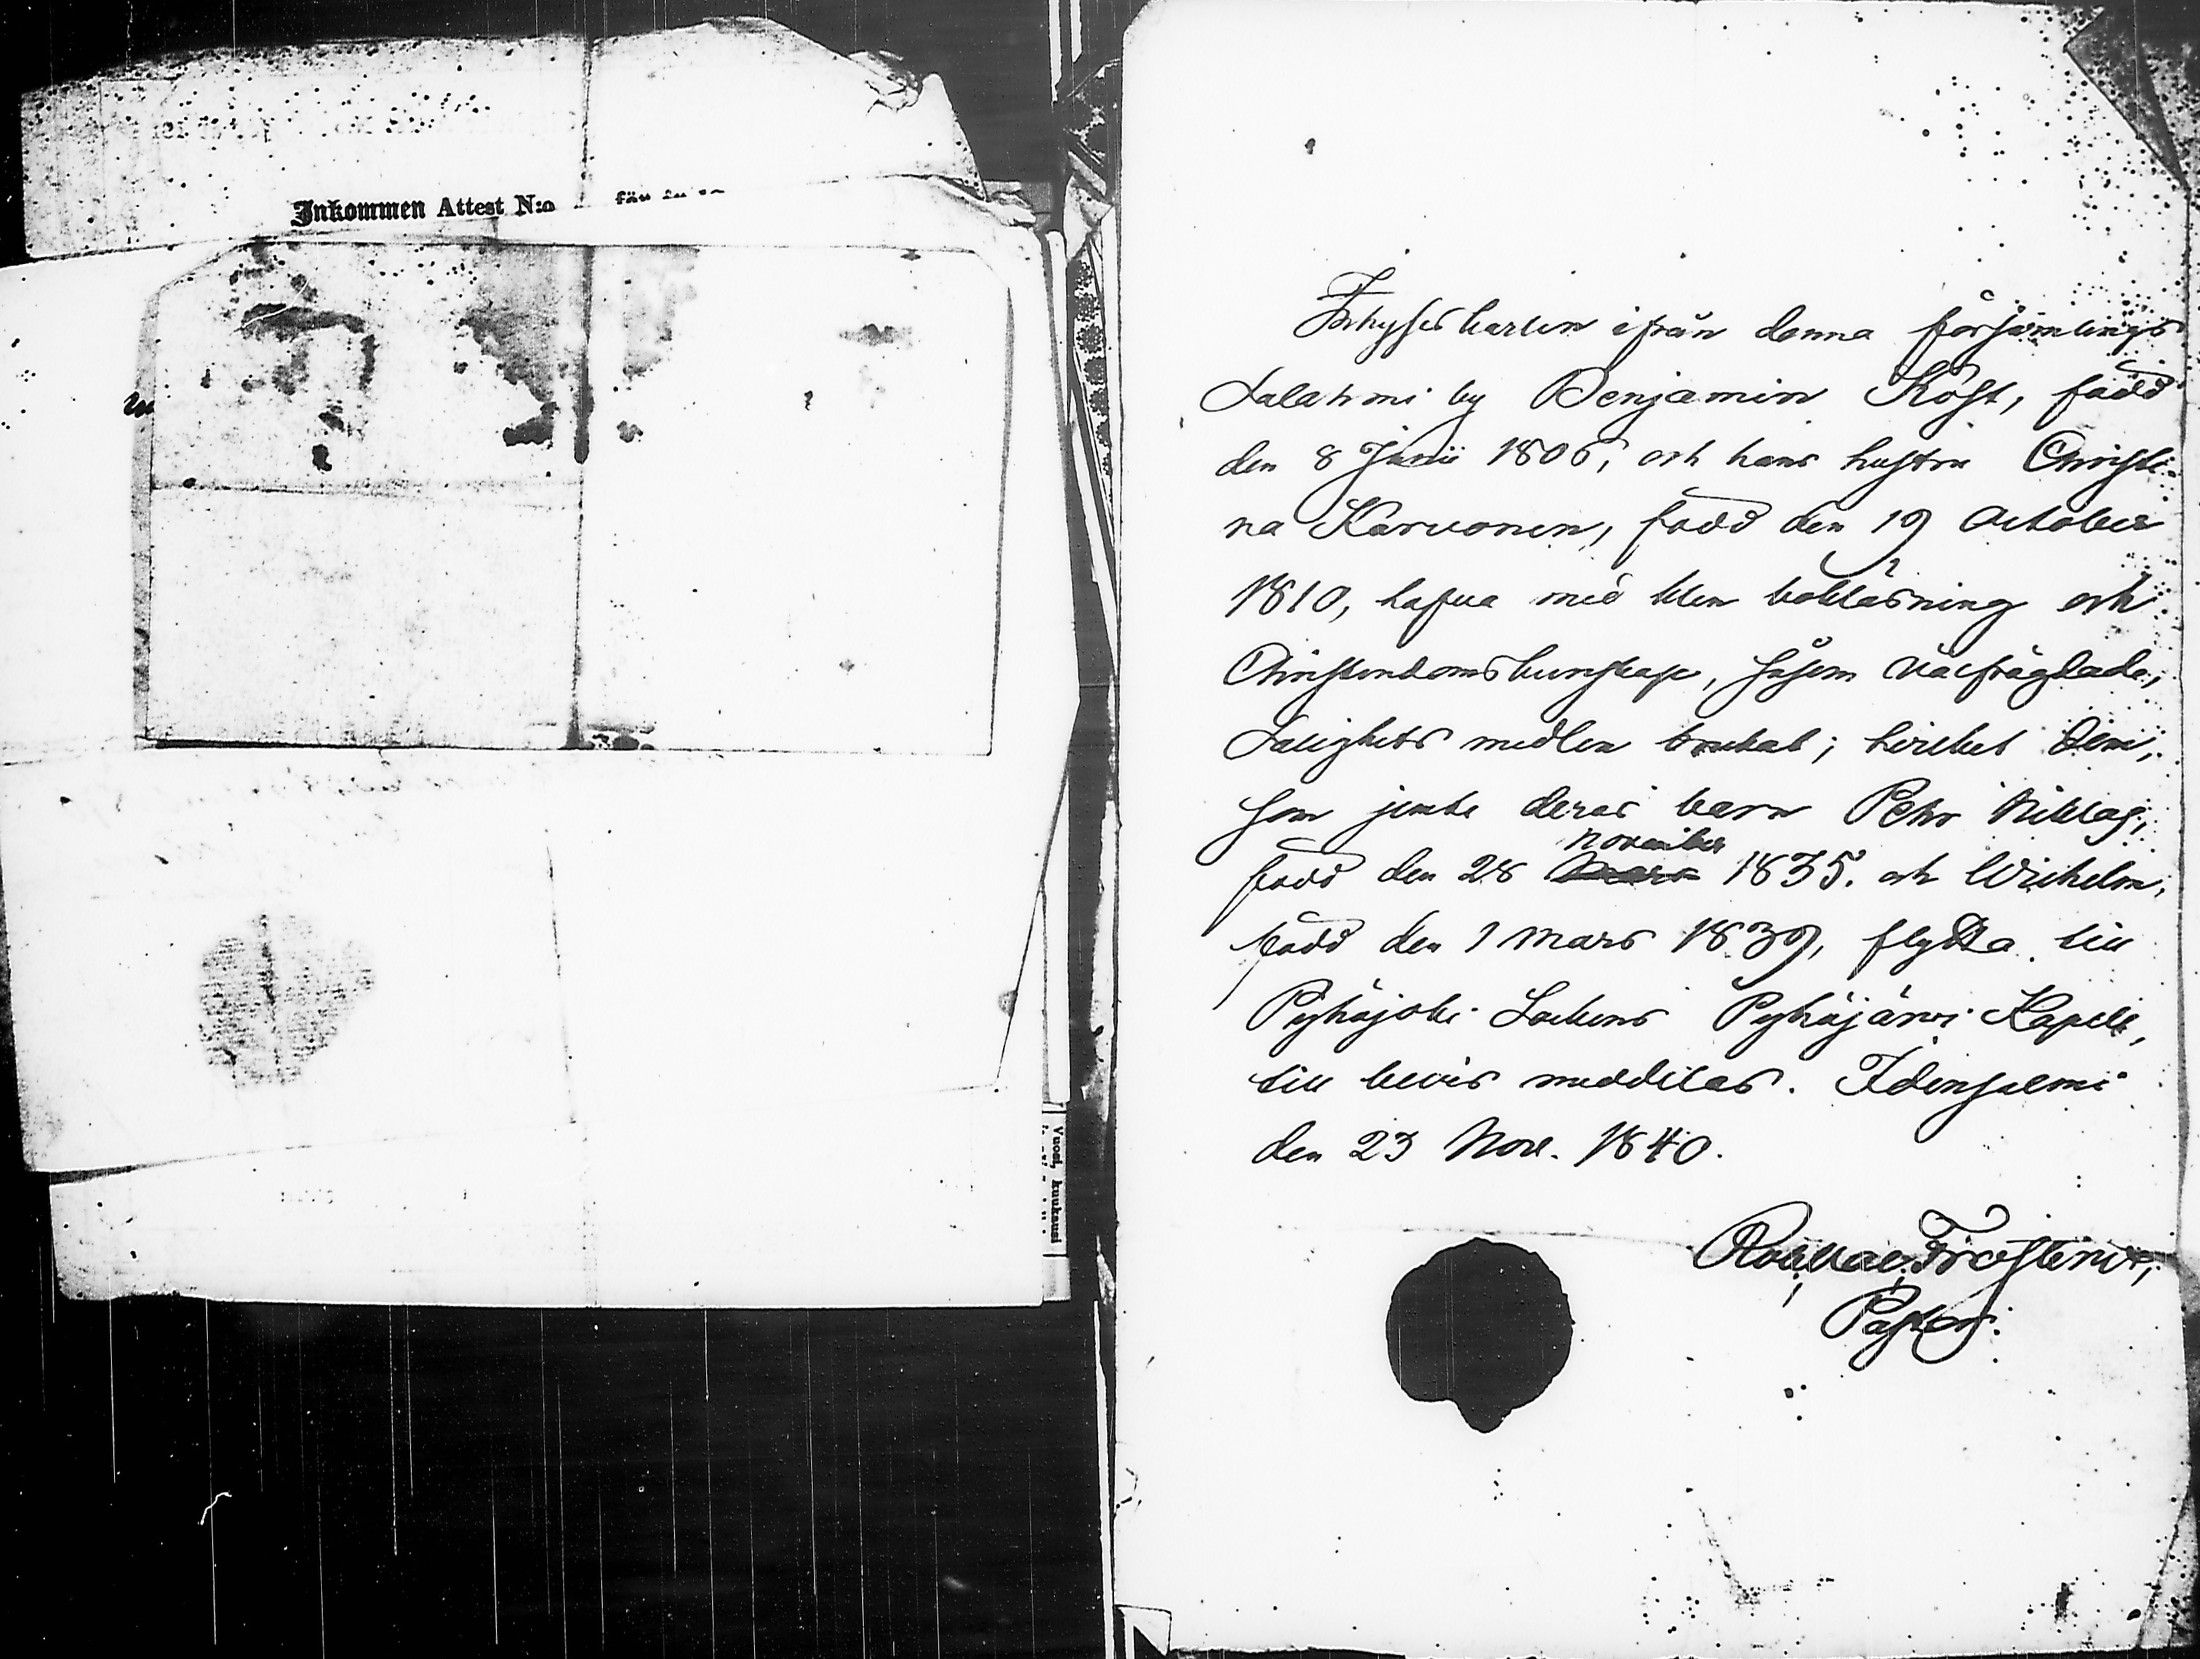 Inkommen Attest N:o för
Inhyses karlen ifrån denna församlings
Salahmi by Benjamin Köst, född
den 8 Junii 1806, och hans hustru Christi-
na Karvonen, född den 19 October
1810, hafva med liten bokläsning och
Christendomskunskap, såsom välfrägdade,
Salighets medlen brukat; hvilket dem,
som jemte deras barn Petter Niklas,
född den 28 november 1835. och Wilhelm,
född den 1 Mars 1839, flytta till
Pyhäjoki Sockens Pyhäjärvi Kapell,
till bevis meddelas. Idensalmi
den 23 Nov. 1840.
Frosterus,
Pastor.
Vuosi, kuukausi